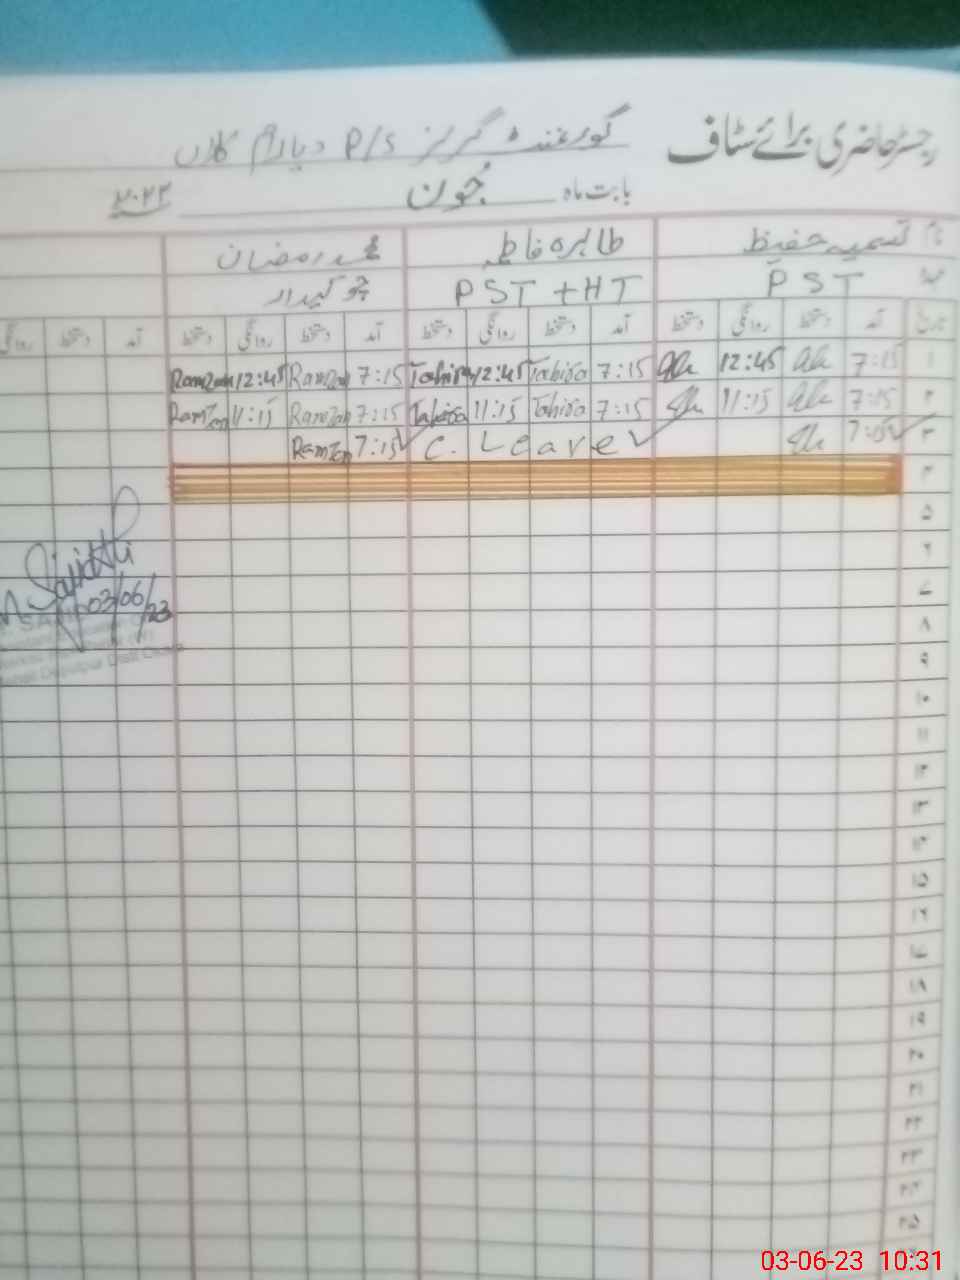 رجسٹر حاضری برائے سٹاف گورنمنٹ گرلز P/S دیارام کلاں
بابت ماہ جون ۲۰۲۳
نام تسمیہ حفیظ طاہرہ فاطمہ محمد رمضان
عہدہ PST PST + HT چوکیدار
تاریخ آمد دستخط روانگی دستخط آمد دستخط روانگی دستخط آمد دستخط روانگی دستخط آمد دستخط روانگی
۱ 7:15 12:45 7:15 Tahira 12:45 Tahira 7:15 Ramzan 12:45 Ramzan
۲ 7:15 11:15 7:15 Tahira 11:15 Tahira 7:15 Ramzan 11:15 Ramzan
۳ 7:15 C. Leave 7:15 Ramzan
۴
۵
۶
۷
Sajid Ali
03/06/23
۸
۹
۱۰
۱۱
۱۲
۱۳
۱۴
۱۵
۱۶
۱۷
۱۸
۱۹
۲۰
۲۱
۲۲
۲۳
۲۴
۲۵
03-06-23 10:31